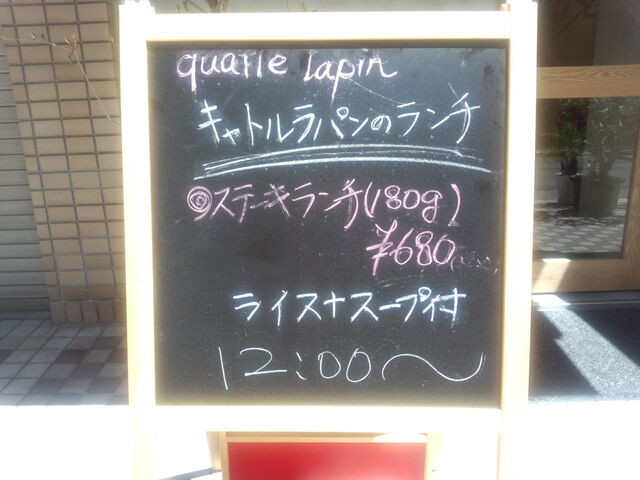 quatre lapin
キャトルラパンのランチ
◎ステーキランチ(180g)
¥680
ライス+スープ付
12:00〜